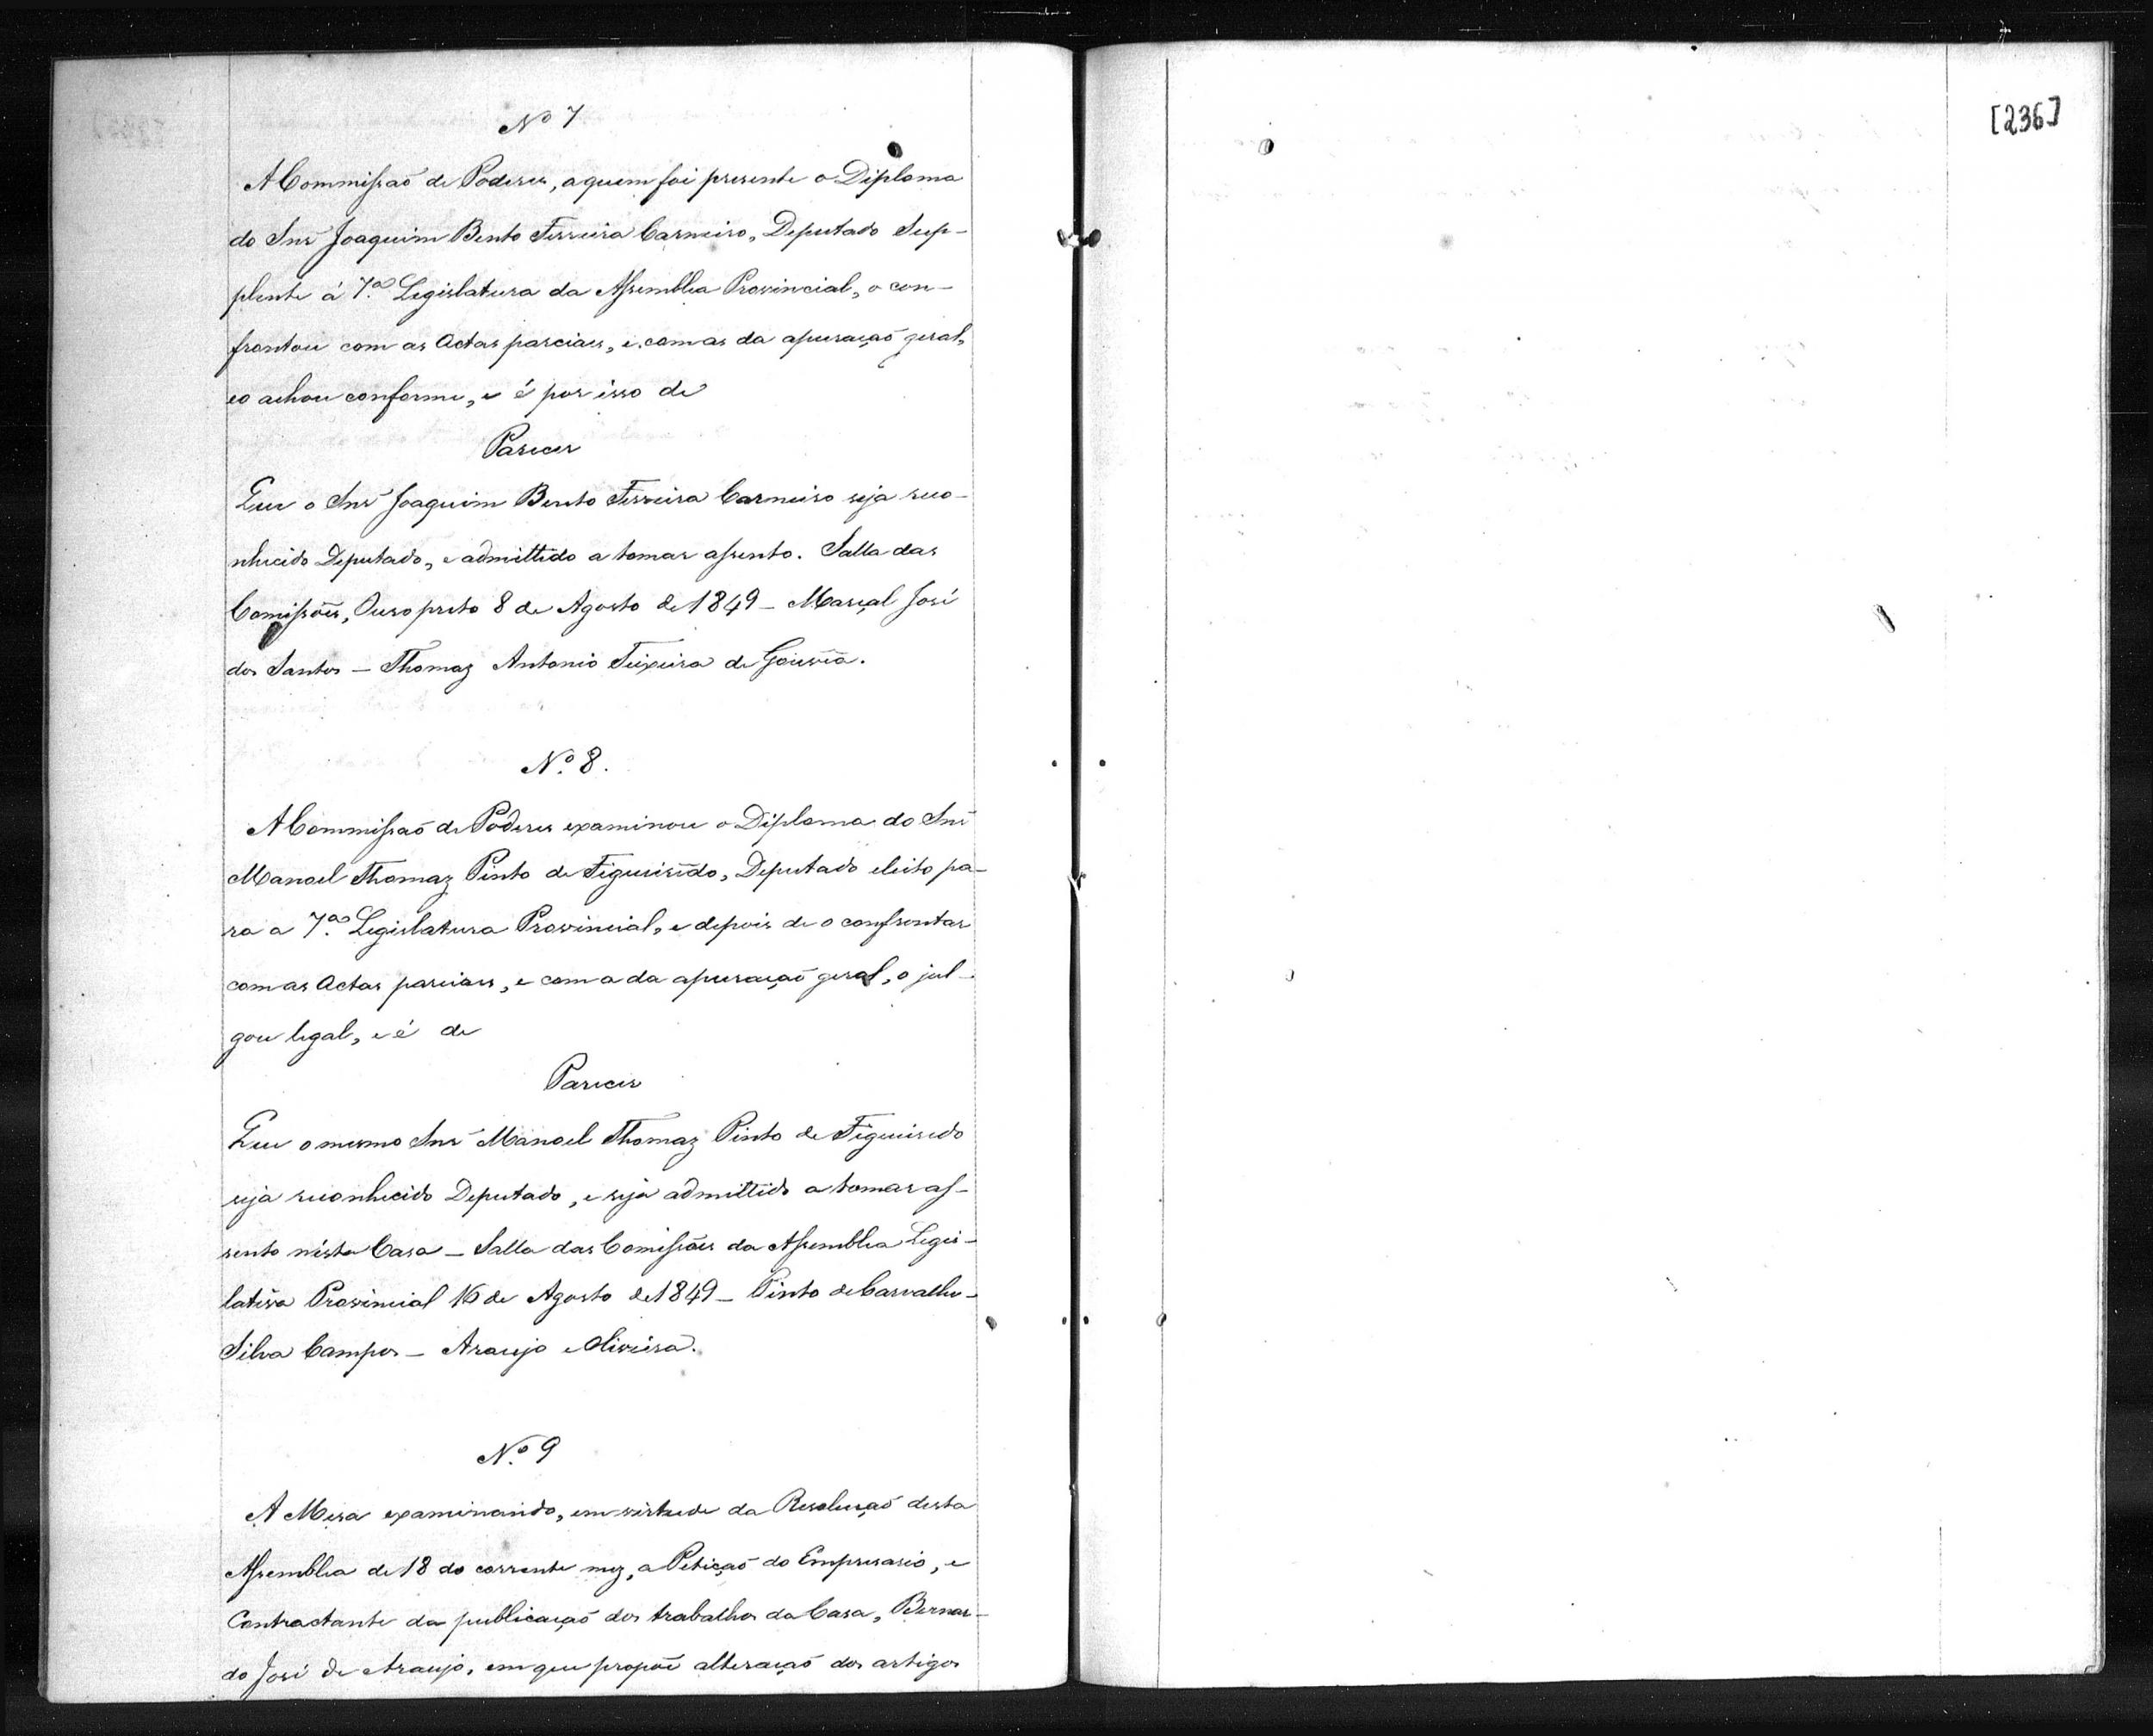 Nº 7
A Commissaõ de Poderes, aquem foi presente o Diploma
do Snr Joaquim Bento Ferreira Carneiro, Deputado Sup-
plente á 7.ª Legislatura da Assemblea Provincial, o con-
frontou com as Actas parciaes, e com as da apuraçaõ geral,
e o achou conforme, e é por isso de
Parecer
Que o Snr Joaquim Bento Ferreira Carneiro seja reco-
nhecido Deputado, e admittido a tomar assento. Salla das
Comissões, Ouro preto 8 de Agosto de 1849 - Marçal José
dos Santos - Thomaz Antonio Teixeira de Gouvêa.
Nº. 8.
A Commissaõ de Poderes examinou o Diploma do Snr
Manoel Thomaz Pinto de Figueirêdo, Deputado eleito pa-
ra a 7.ª Legislatura Provincial, e depois de o confrontar
com as Actas parciaes, e com a da apuraçaõ geral, o jul-
gou legal, e é de
Parecer
Que o mesmo Snr Manoel Thomaz Pinto de Figueiredo
seja reconhecido Deputado, e seja admittido a tomar as-
sento nésta Casa - Salla das Comissões da Assemblea Legis-
lativa Provincial 16 de Agosto de 1849 - Pinto de Carvalho -
Silva Campos - Araujo e Oliveira.
Nº. 9
A Mesa examinando, em virtude da Resoluçaõ desta
Assemblea de 18 do corrente mez, a Petiçaõ do Empresario, e
Contractante da publicaçaõ dos trabalhos da Casa, Bernar-
do José de Araujo, em que propõe alteraçaõ dos artigos
[236]